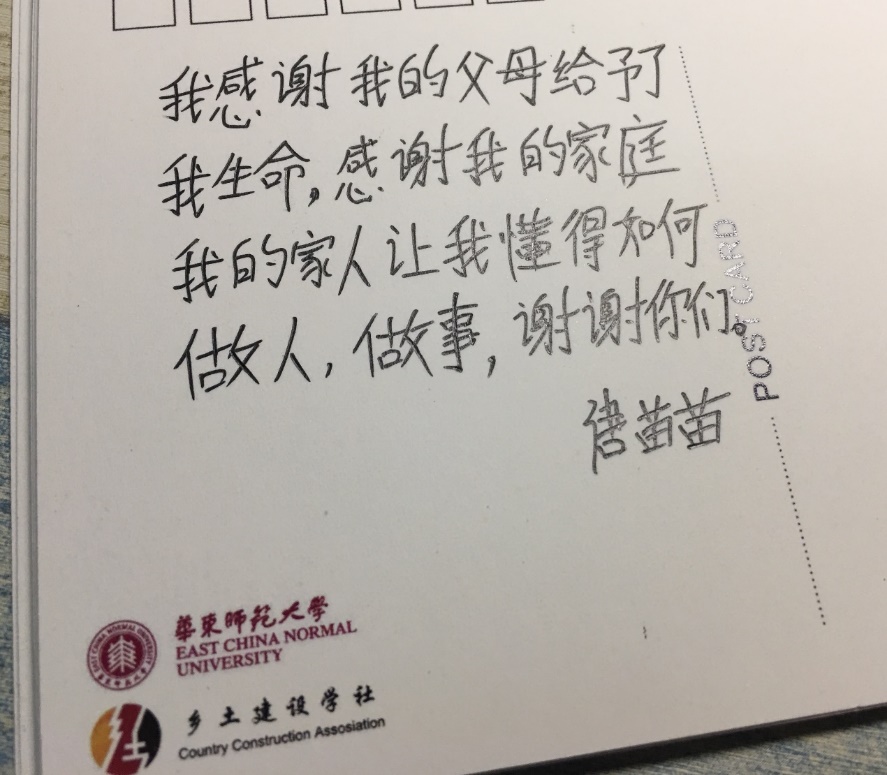 我感谢我的父母给予了
我生命,感谢我的家庭
我的家人让我懂得如何
做人,做事,谢谢你们。
唐苗苗
POST CARD
華東師範大學
EAST CHINA NORMAL
UNIVERSITY
乡土建设学社
Country Construction Assosiation